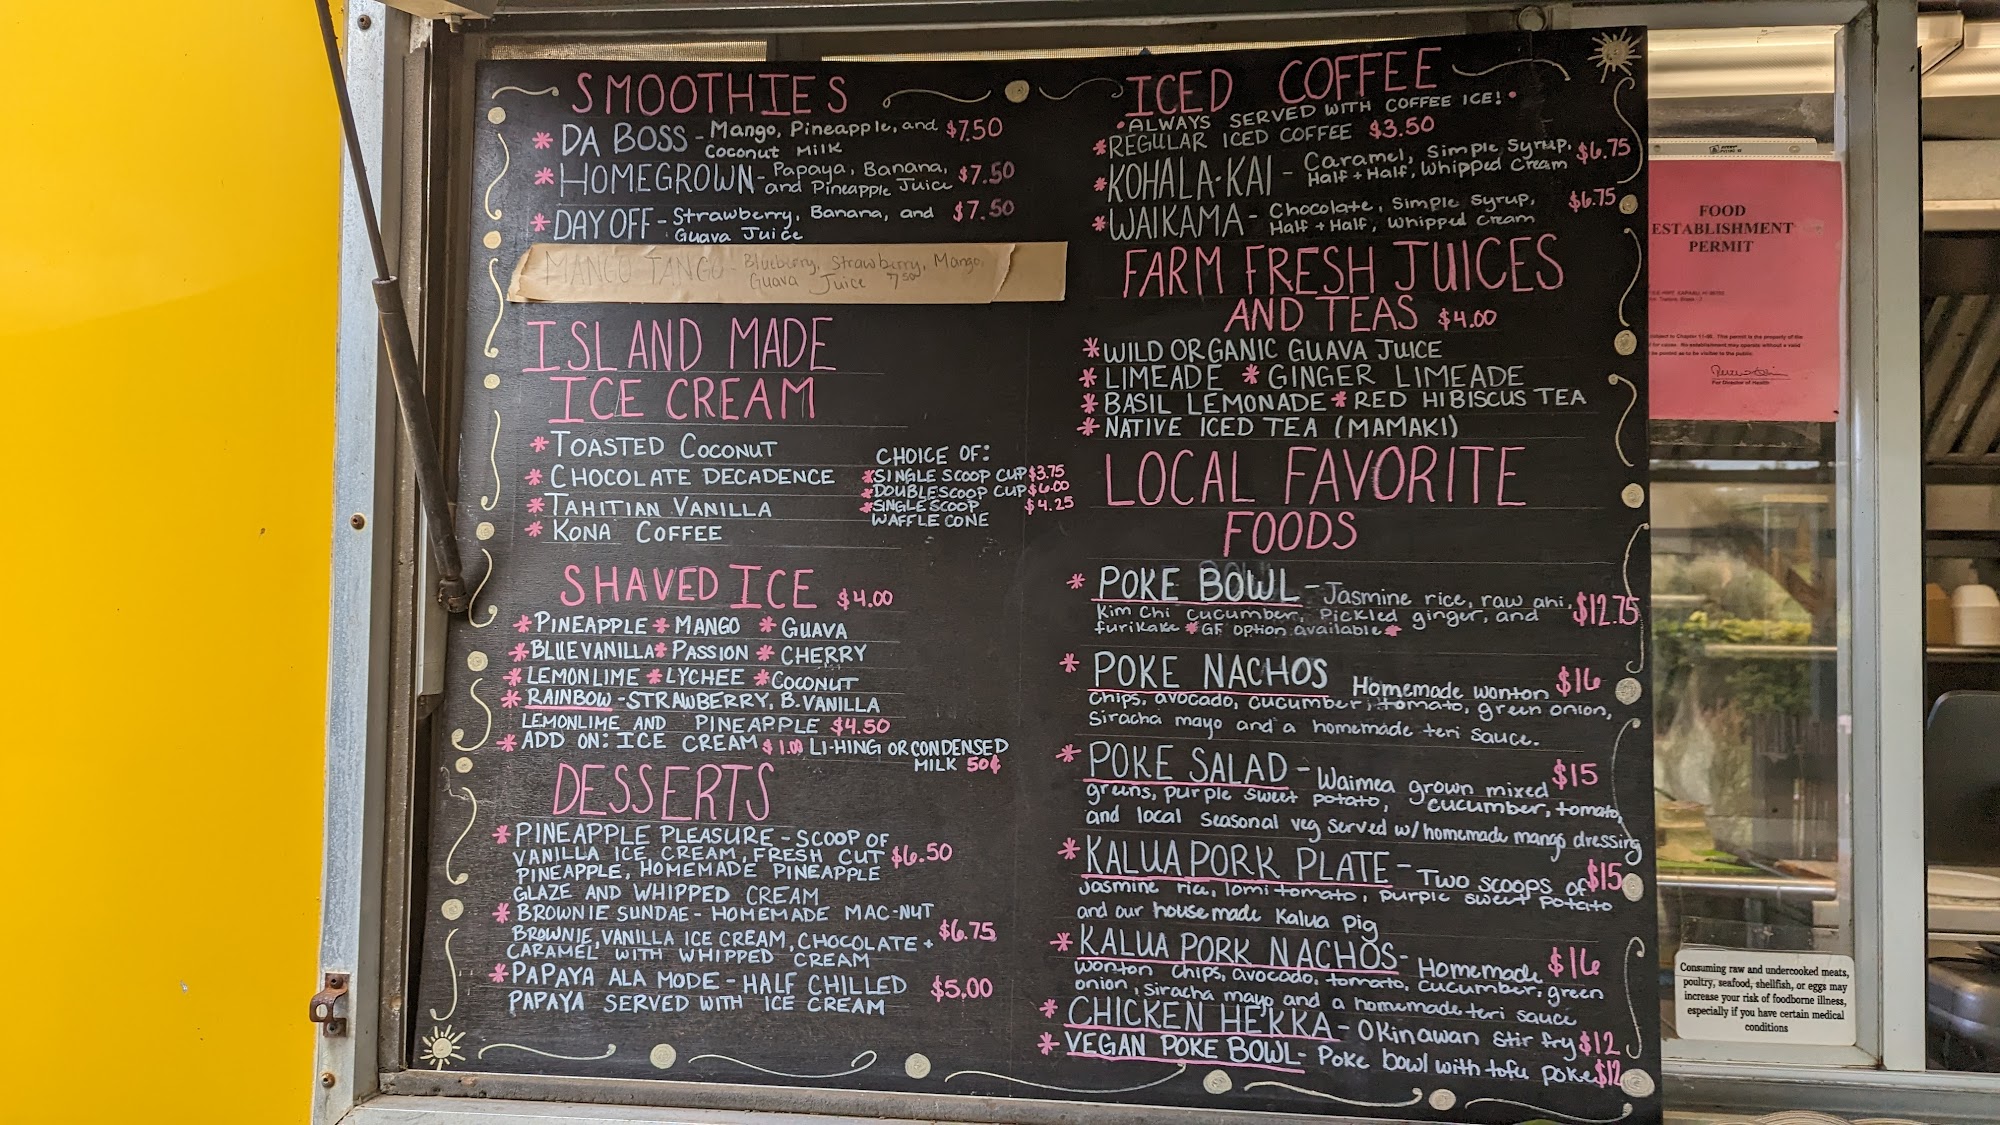 SMOOTHIES
* DA BOSS - Mango, Pineapple, and $7.50
Coconut Milk
* HOMEGROWN - Papaya, Banana, $7.50
and Pineapple Juice
* DAY OFF - Strawberry, Banana, and $7.50
Guava Juice
MANGO TANGO - Blueberry, Strawberry, Mango,
Guava Juice 7.50
ISLAND MADE
ICE CREAM
* TOASTED COCONUT
* CHOCOLATE DECADENCE
* TAHITIAN VANILLA
* KONA COFFEE
CHOICE OF:
* SINGLE SCOOP CUP $3.75
* DOUBLE SCOOP CUP $6.00
* SINGLE SCOOP $4.25
WAFFLE CONE
SHAVED ICE $4.00
* PINEAPPLE * MANGO * GUAVA
* BLUE VANILLA * PASSION * CHERRY
* LEMONLIME * LYCHEE * COCONUT
* RAINBOW - STRAWBERRY, B. VANILLA
LEMONLIME AND PINEAPPLE $4.50
* ADD ON: ICE CREAM $1.00 LI-HING OR CONDENSED
MILK 50¢
DESSERTS
* PINEAPPLE PLEASURE - SCOOP OF
VANILLA ICE CREAM, FRESH CUT $6.50
PINEAPPLE, HOMEMADE PINEAPPLE
GLAZE AND WHIPPED CREAM
* BROWNIE SUNDAE - HOMEMADE MAC-NUT
BROWNIE, VANILLA ICE CREAM, CHOCOLATE + $6.75
CARAMEL WITH WHIPPED CREAM
* PAPAYA ALA MODE - HALF CHILLED $5.00
PAPAYA SERVED WITH ICE CREAM
ICED COFFEE
• ALWAYS SERVED WITH COFFEE ICE! •
* REGULAR ICED COFFEE $3.50
* KOHALA-KAI - Caramel, Simple Syrup, $6.75
Half + Half, Whipped Cream
* WAIKAMA - Chocolate, Simple Syrup, $6.75
Half + Half, Whipped Cream
FARM FRESH JUICES
AND TEAS $4.00
* WILD ORGANIC GUAVA JUICE
* LIMEADE * GINGER LIMEADE
* BASIL LEMONADE * RED HIBISCUS TEA
* NATIVE ICED TEA (MAMAKI)
LOCAL FAVORITE
FOODS
* POKE BOWL - Jasmine rice, raw ahi, $12.75
Kim Chi cucumber, Pickled ginger, and
furikake * GF option available *
* POKE NACHOS Homemade wonton $16
chips, avocado, cucumber, tomato, green onion,
Siracha mayo and a homemade teri sauce.
* POKE SALAD - Waimea grown mixed $15
greens, purple sweet potato, cucumber, tomato,
and local seasonal veg served w/ homemade mango dressing
* KALUA PORK PLATE - Two scoops of $15
Jasmine rice, lomi tomato, purple sweet potato
and our house made Kalua pig
* KALUA PORK NACHOS - Homemade $16
wonton chips, avocado, tomato, cucumber, green
onion, siracha mayo and a homemade teri sauce
* CHICKEN HEKKA - Okinawan stir fry $12
* VEGAN POKE BOWL - Poke bowl with tofu poke $12
FOOD
ESTABLISHMENT
PERMIT
For Director of Health
Consuming raw and undercooked meats,
poultry, seafood, shellfish, or eggs may
increase your risk of foodborne illness,
especially if you have certain medical
conditions